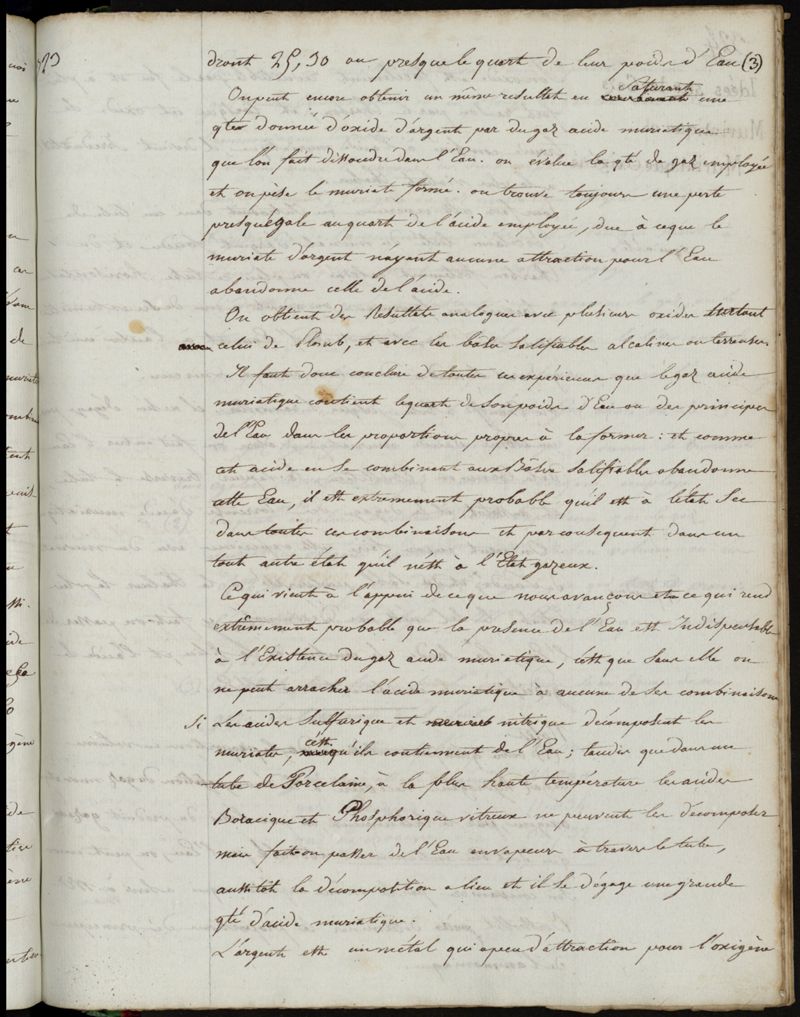 dront 25,30 ou presque le quart de leur poids d'Eau (3)
On peut encore obtenir un même resultat en saturant une
qté donnée d'oxide d'argent par du gaz acide muriatique
que l'on fait dissoudre dans l'Eau. on évalue la qté de gaz employée
et on pèse le muriate formé. on trouve toujours une perte
presqu'égale au quart de l'acide employée, due à ce que le
muriate d'argent n'ayant aucune attraction pour l'Eau
abandonne celle de l'acide.
On obtient des Resultats analogues avec plusieurs oxides surtout
celui de Plomb, et avec les bases salifiables alcalines ou terreuses
Il faut donc conclure de toutes ces expériences que le gaz acide
muriatique contient le quart de son poids d'Eau ou des principes
de l'Eau dans les proportions propres à la former : et comme
cet acide en se combinant aux Bâses salifiables abandonne
cette Eau, il est extremement probable qu'il est à l'état sec
dans toutes ces combinaisons et par consequent dans un
tout autre état qu'il n'est à l'Etat gazeux.
Ce qui vient à l'appui de ce que nous avançons et ce qui rend
extrêmement probable que la presence de l'Eau est Indispensable
à l'Existence du gaz acide muriatique, c'est que sans elle on
ne peut arracher l'acide muriatique à aucune de ses combinaisons
Si Les acides Sulfurique et nitrique décomposent les
muriates, c'est qu'ils contiennent de l'Eau; tandis que dans un
tube de Porcelaine, à la plus haute température les acides
Boracique et Phosphorique vitreux ne peuvent les décomposer
mais fait on passer de l'Eau en vapeurs à travers le tube,
aussitot la décomposition a lieu et il se dégage une grande
qté d'acide muriatique.
L'argent est un métal qui a peu d'attraction pour l'oxigène